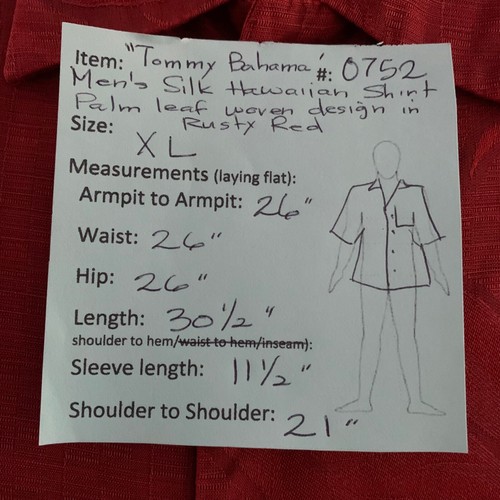 Item: "Tommy Bahama" #: 0752
Men's Silk Hawaiian Shirt
Palm leaf woven design in
Size: Rusty Red
XL
Measurements (laying flat):
Armpit to Armpit: 26"
Waist: 26"
Hip: 26"
Length: 30 1/2"
shoulder to hem/waist to hem/inseam):
Sleeve length: 11 1/2"
Shoulder to Shoulder: 21"